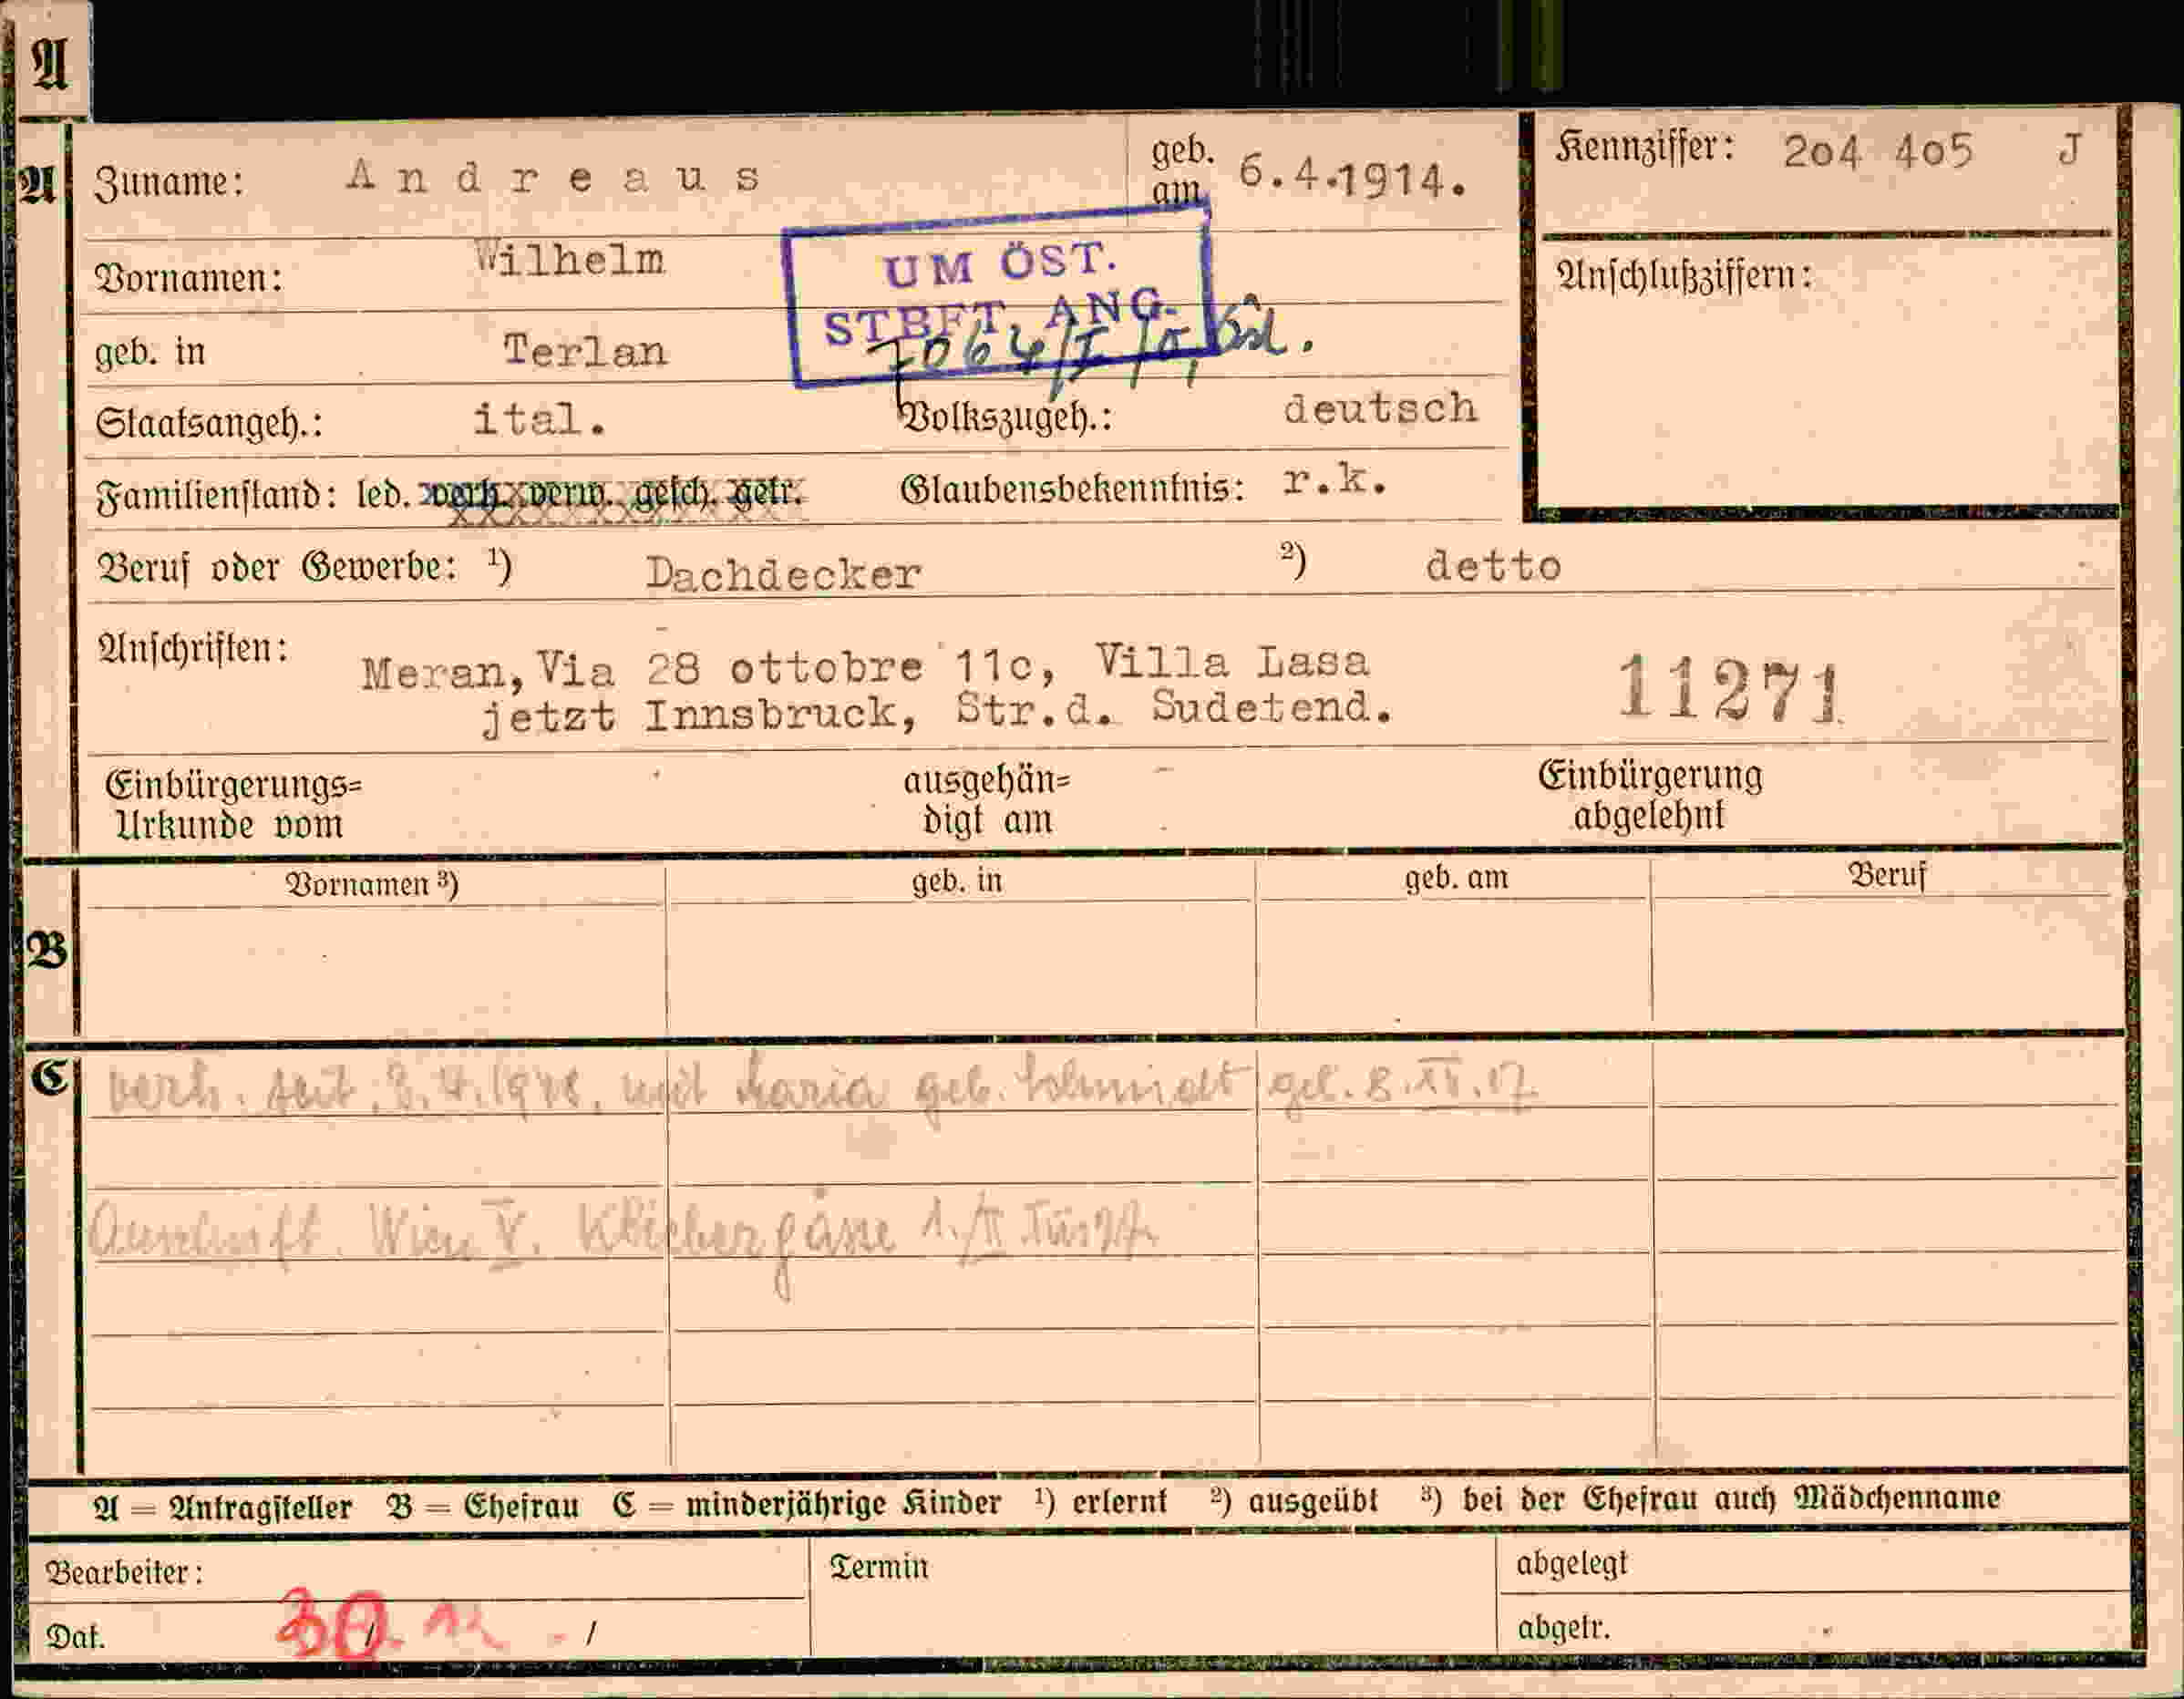 A
A
Zuname: Andreaus geb. am 6.4.1914.
Kennziffer: 204 405 J
Vornamen: Wilhelm
UM ÖST.
STBFT. ANG.
Anschlußziffern:
geb. in Terlan
Staatsangeh.: ital. Volkszugeh.: deutsch
Familienstand: led. verh. verw. gesch. getr. Glaubensbekenntnis: r.k.
Beruf oder Gewerbe: 1) Dachdecker 2) detto
Anschriften: Meran, Via 28 ottobre 11c, Villa Lasa
jetzt Innsbruck, Str.d. Sudetend.
11271
Einbürgerungs=
Urkunde vom
ausgehän=
digt am
Einbürgerung
abgelehnt
Vornamen 3) geb. in geb. am Beruf
B
C
verh. seit 3.4.1948. mit Maria geb. Schmidt geb. 8.IV.17
Anschrift Wien V. Kliebergasse 1./II
A = Antragsteller B = Ehefrau C = minderjährige Kinder 1) erlernt 2) ausgeübt 3) bei der Ehefrau auch Mädchenname
Bearbeiter: Termin abgelegt
Dat. 30. / / abgetr.